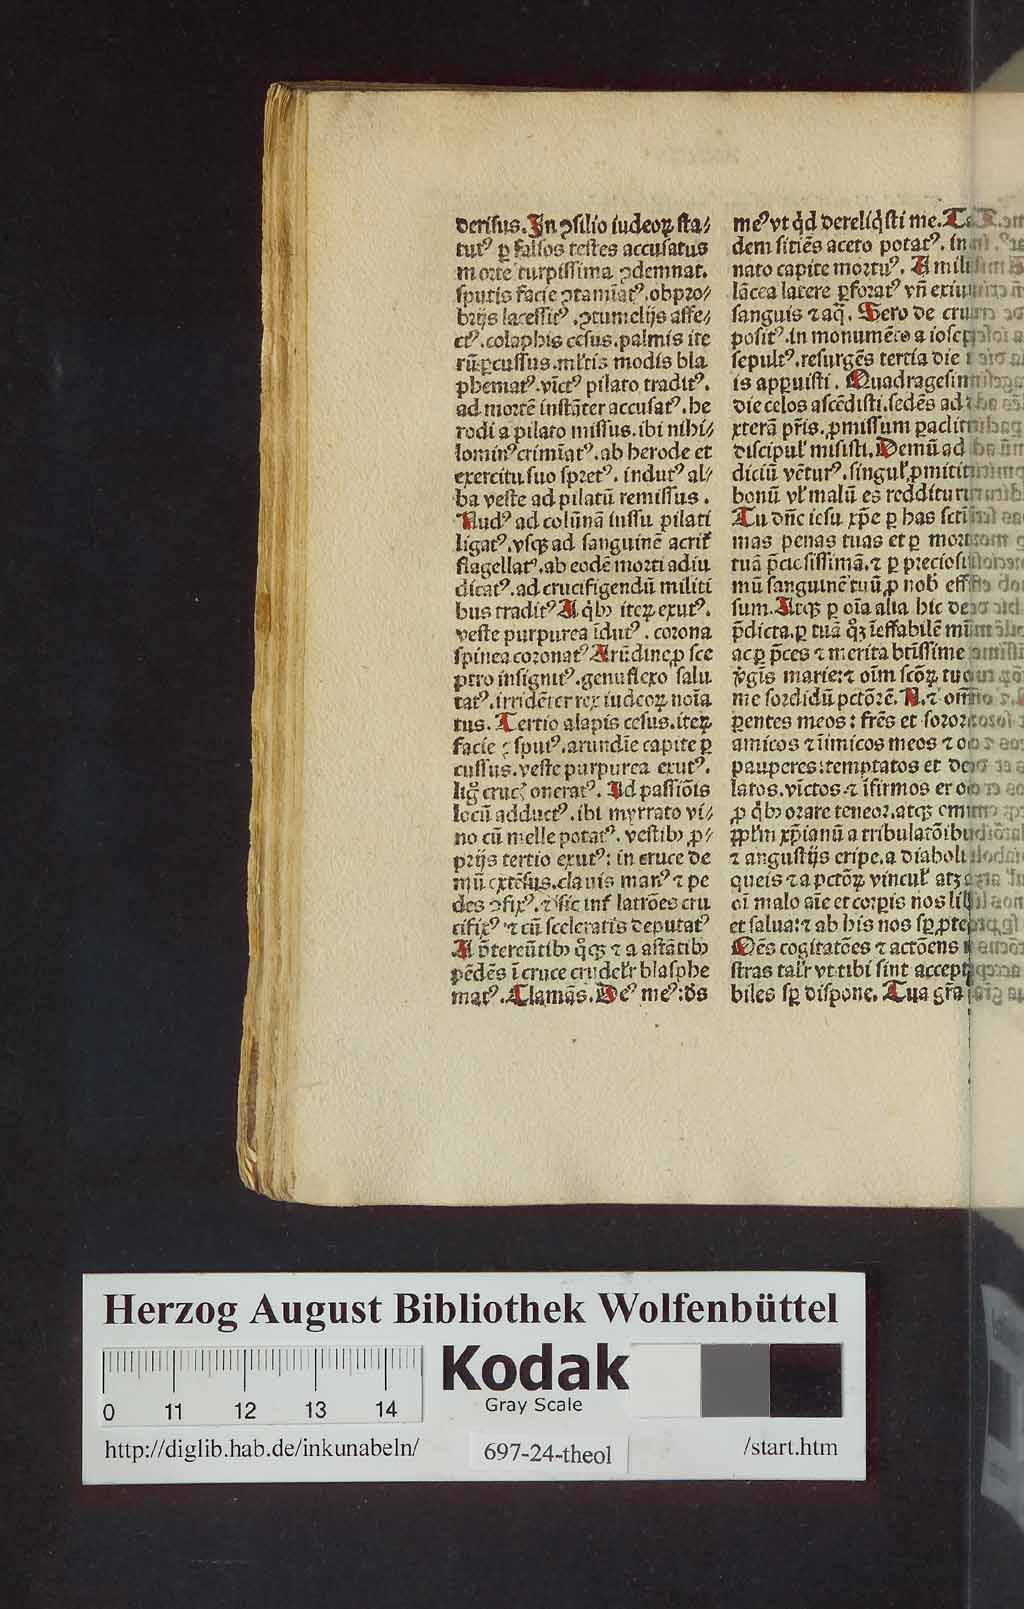 derisus. In ꝯsilio iudeoꝝ sta⸗
tutꝰ ꝑ falsos testes accusatus
morte turpissima ꝯdemnat.
sputis facie ꝯtamīatꝰ. obpro⸗
brijs lacessitꝰ. ꝯtumelijs affe⸗
ctꝰ. colaphis cesus. palmis ite
rū ꝑcussus. ml'tis modis bla
phematꝰ. vīctꝰ pilato traditꝰ.
ad mortē instāter accusatꝰ. he
rodi a pilato missus. ibi nihi⸗
lominꝰ crimīatꝰ. ab herode et
exercitu suo spretꝰ. indutꝰ al⸗
ba veste ad pilatū remissus.
Nudꝰ ad colūnā iussu pilati
ligatꝰ. vsqꝫ ad sanguinē acrit̛
flagellatꝰ. ab eodē morti adiu
dicatꝰ. ad crucifigendū militi
bus traditꝰ A qͥbꝫ iteꝝ exutꝰ.
veste purpurea īdutꝰ. corona
spinea coronatꝰ Arūdine ꝓ sce
ptro insignitꝰ. genuflexo salu
tatꝰ. irridēter rex iudeoꝝ noīa
tus. Tertio alapis cesus. iteꝝ
facie ꝯsputꝰ. arundīe capite ꝑ
cussus. veste purpurea exutꝰ.
ligͦ cruc̛ oneratꝰ. Ad passiōis
locū adductꝰ. ibi myrrato vi⸗
no cū melle potatꝰ. vestibꝫ ꝓ⸗
prijs tertio exutꝰ: in cruce de
mū extēsus. clauis manꝰ ⁊ pe
des ꝯfixꝰ. ⁊ sic int̛ latrōes cru
cifixꝰ ⁊ cū sceleratis deputatꝰ
A p̄tereūtibꝫ qͦqꝫ ⁊ a astātibꝫ
pēdēs ī cruce crudel'r blasphe
matꝰ. Clamās. Deꝰ meꝰ: ds̄
meꝰ vt qͥd dereliqͥsti me.
dem sitiēs aceto potatꝰ. in
nato capite mortuꝰ. A mili
lācea latere ꝑforatꝰ vn̄ exiu
sanguis ⁊ aq̄. Sero de cru
positꝰ. in monumēto a iosep
sepultꝰ. resurgēs tertia die
is apꝑuisti. Quadragesim
die celos ascēdisti. sedēs ad
xterā p̄ris. ꝓmissum ꝑaclit
discipul̛ misisti. Demū ad
diciū vētur̛. singul̛ ꝓmitit
bonū vl̛ malū es redditur
Tu dn̄e iesu xp̄e ꝑ has scti
mas penas tuas et ꝑ mort
tuā p̄ciosissimā. ⁊ ꝑ preciosis
mū sanguinē tuū ꝓ nob̛ eff
sum. Atqꝫ ꝑ oīa alia hic de
p̄dicta. ꝑ tuā qͦꝫ īeffabilē mi
ac ꝑ p̄ces ⁊ merita btīssime
v̛gīs marie: ⁊ oīm scōꝝ tuo
me sordidū pctōrē. N. ⁊ om̄
ꝑentes meos: frēs et soror
amicos ⁊ īimicos meos ⁊ o
pauperes: temptatos et de
latos. vīctos ⁊ īfirmos er o
ꝓ qͥbꝫ orare teneor. atqꝫ omn
ppl̄m xp̄ianū a tribulatōibu
⁊ angustijs eripe. a diaboli
queis ⁊ a pctōꝝ vincul̛ atꝫ
oī malo aīe et corpis nos lib
et salua: ⁊ ab his nos sꝑ ꝓte
Oēs cogitatōes ⁊ actōens
stras tal'r vt tibi sint accept
biles sꝑ dispone. Tua gr̄a
Herzog August Bibliothek Wolfenbüttel
0 11 12 13 14
Kodak
Gray Scale
http://diglib.hab.de/inkunabeln/
697-24-theol
/start.htm